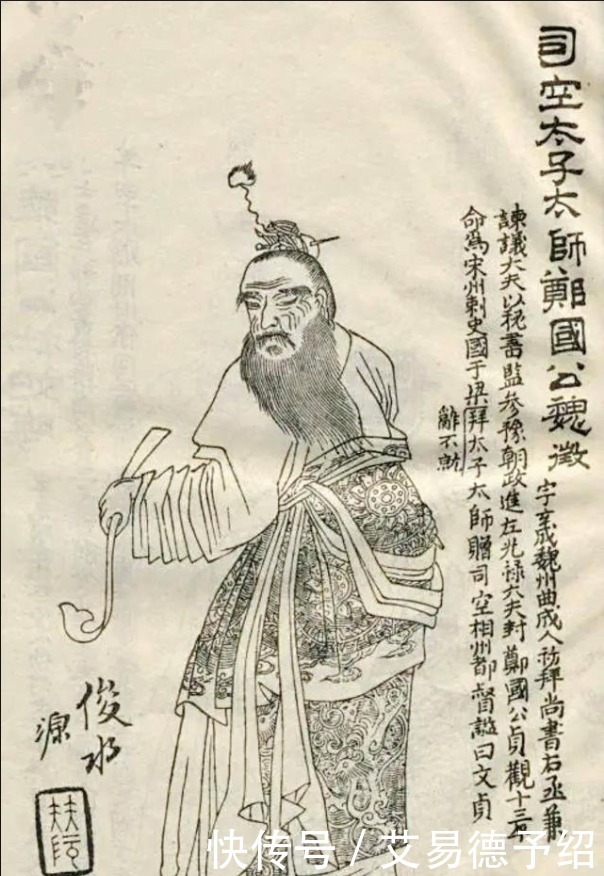 司空太子太師鄭國公魏徵
字玄成魏州曲成人初拜尚書右丞兼
諫議大夫以秘書監參豫朝政進左光祿大夫封鄭國公貞觀十三年
命爲宋州刺史國于梁拜太子太師贈司空相州都督謚曰文貞
不就
俊
源
快传号 / 艾易德予绍